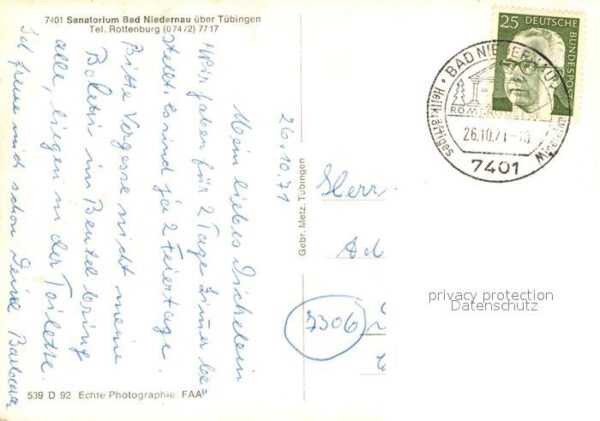 7401 Sanatorium Bad Niedernau über Tübingen
Tel. Rottenburg (07472) 7717
26.10.71
Mein liebes
Wir haben für 2 Tage Zimmer be-
stellt. Es sind ja 2 Feiertage.
Bitte Vergesse nicht meine
im Beutel bring
alle, liegen in der Toilette.
Ich freue mich schon Deine Barbara
Gebr. Metz, Tübingen
539 D 92 Echte Photographie FAA
25 DEUTSCHE
BUNDESPOST
BAD NIEDERNAU
26.10.71-18
7401
Herr
Ad
7306
privacy protection
Datenschutz